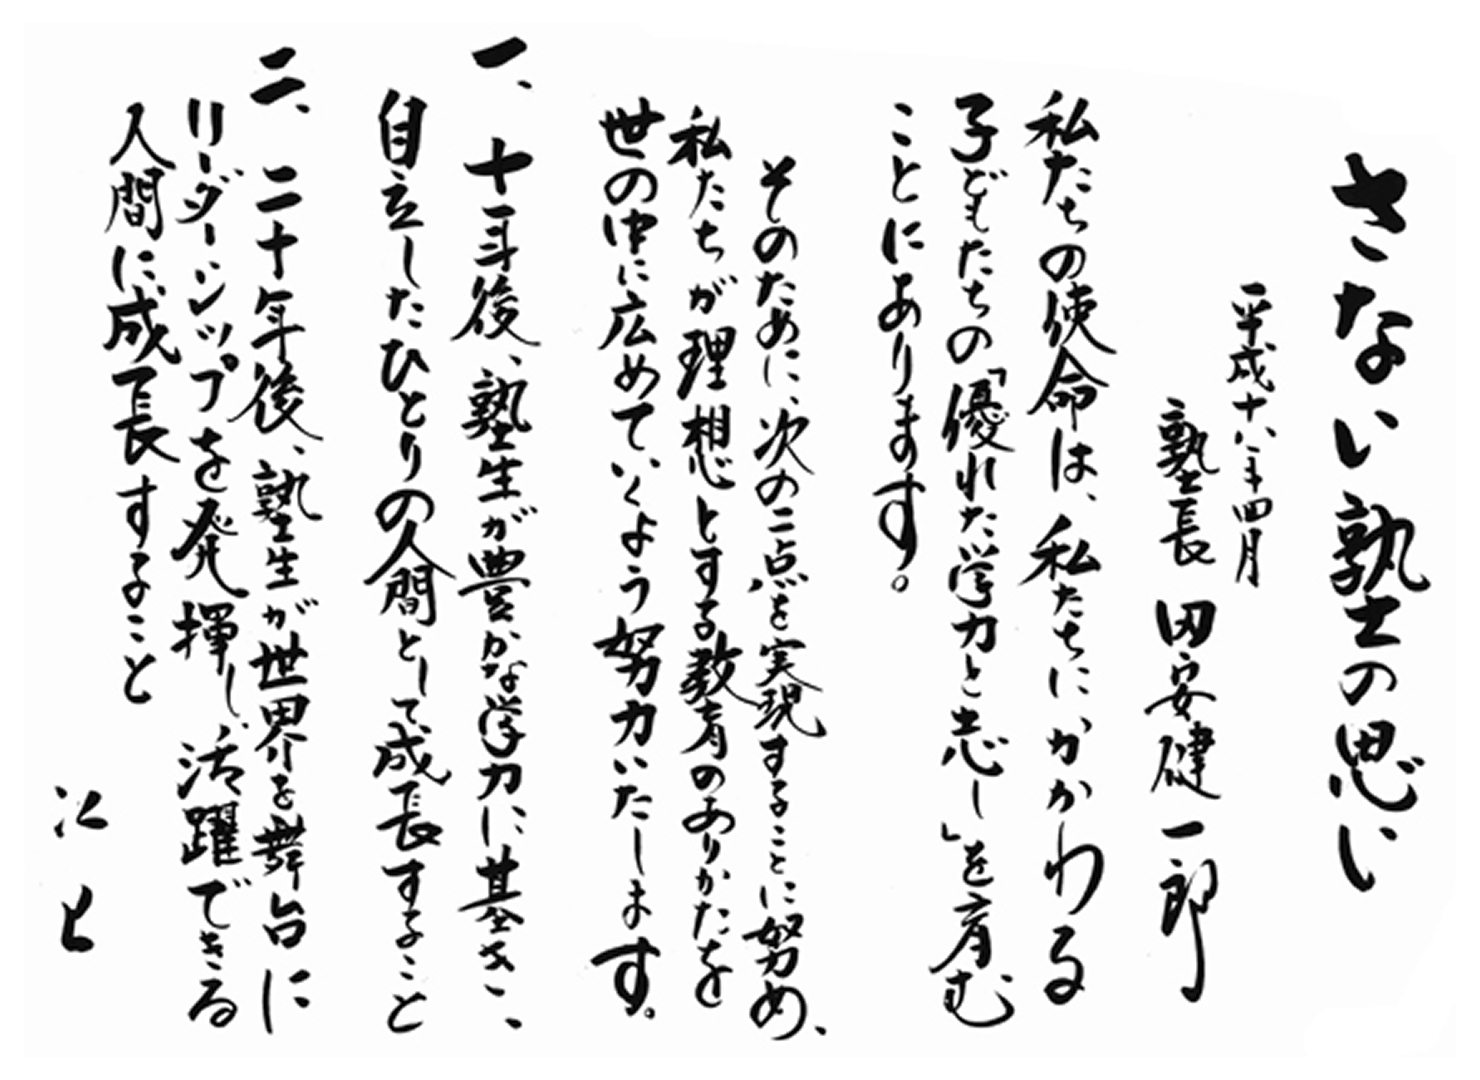 さない塾の思い
平成十八年四月
塾長 田安健一郎
私たちの使命は、私たちにかかわる
子どもたちの「優れた学力と志し」を育む
ことにあります。
そのために、次の二点を実現することに努め、
私たちが理想とする教育のありかたを
世の中に広めていくよう努力いたします。
一、十年後、塾生が豊かな学力に基き、
自立したひとりの人間として成長すること
二、二十年後、塾生が世界を舞台に
リーダーシップを発揮し、活躍できる
人間に成長すること
以上